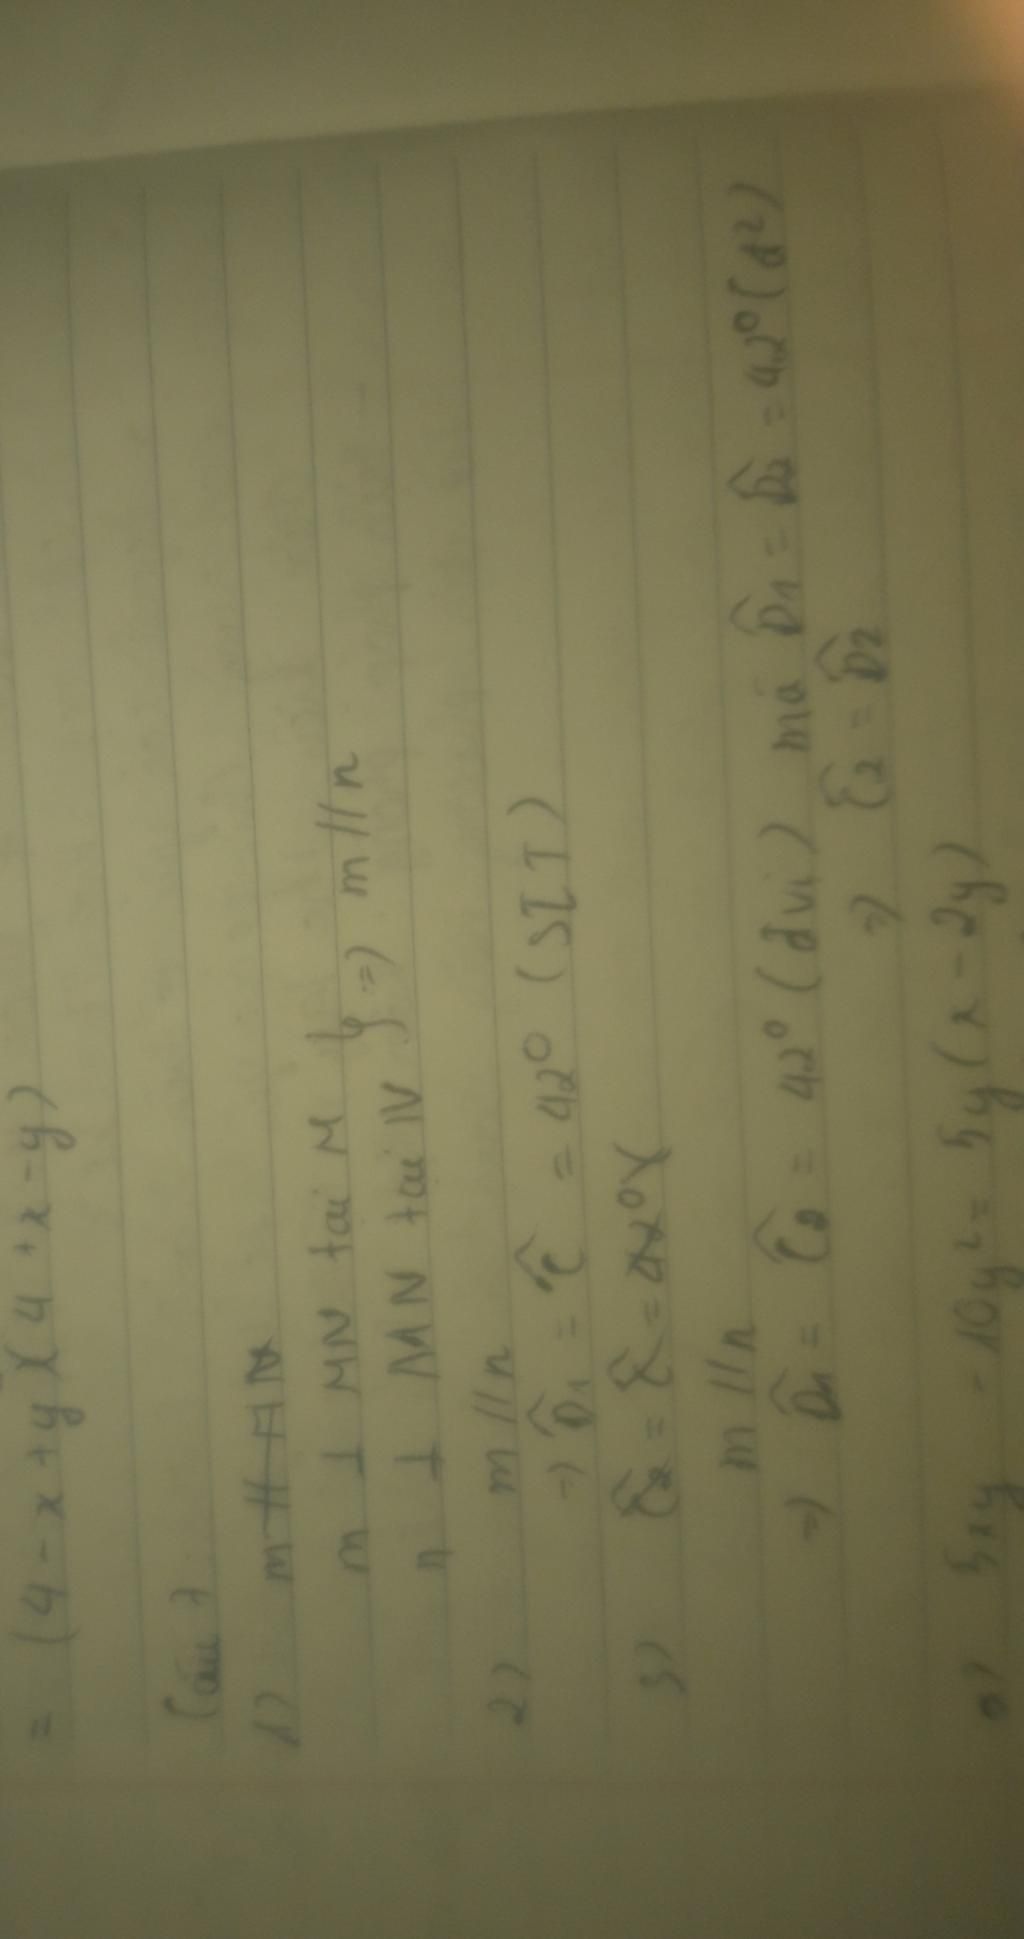 = (4 - x + y)(4 + x - y)
Câu 7
1) m // AN
m ⊥ MN tai M
n ⊥ MN tai N } => m // n
2) m // n
=> D̂1 = Ĉ = 42° (SLT)
3) Ĉ2 = Ĉ = 42°
m // n
=> D̂1 = Ĉ2 = 42° (đvi) mà D̂1 = D̂2 = 42° (đ2)
=> Ĉ2 = D̂2
5xy - 10y² = 5y(x - 2y)